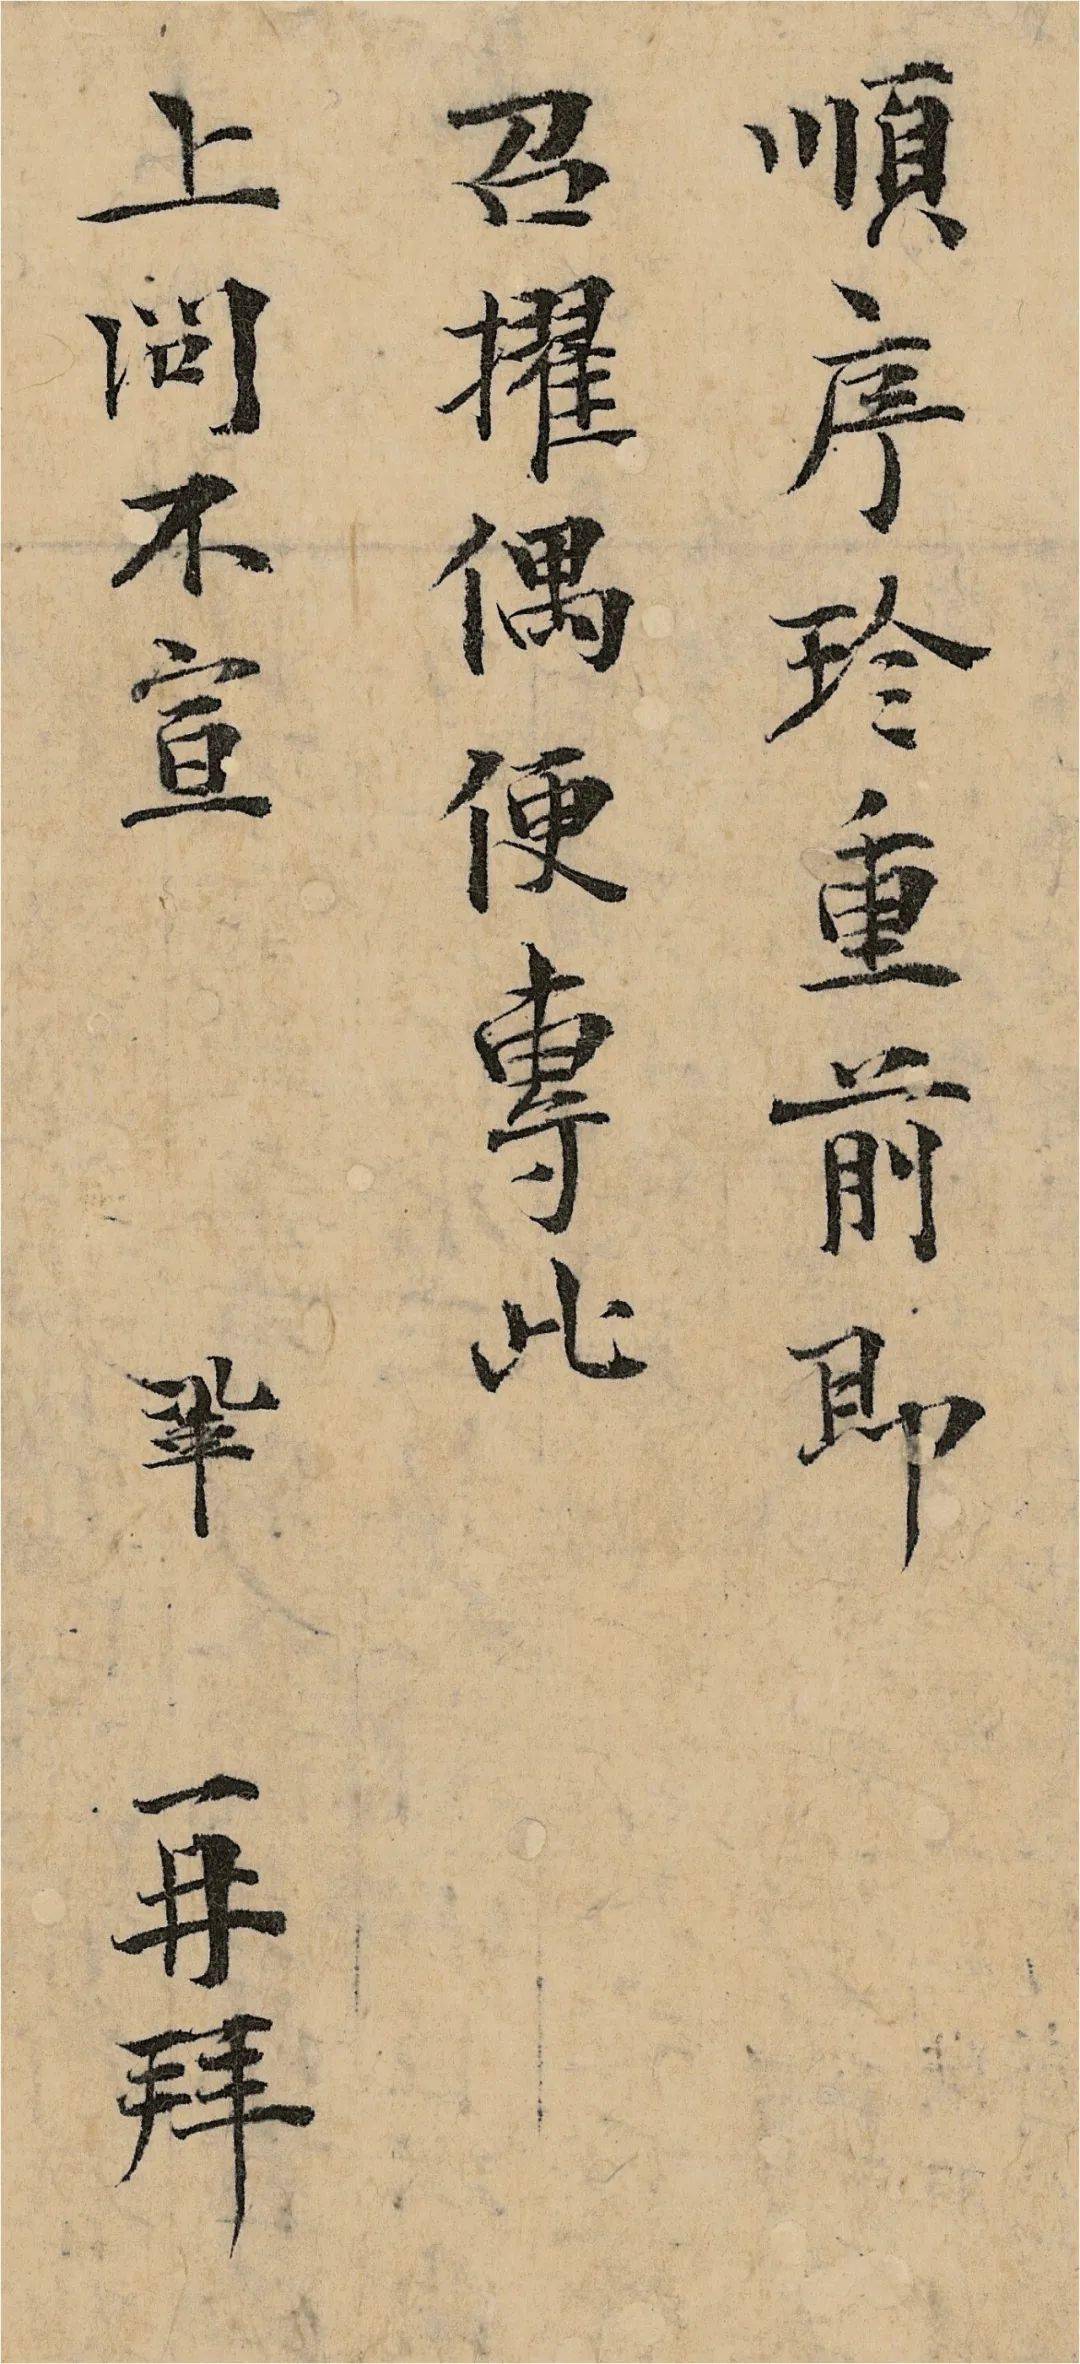 順序珍重前即
召擢偶便專此
上問不宣 鞏 再拜